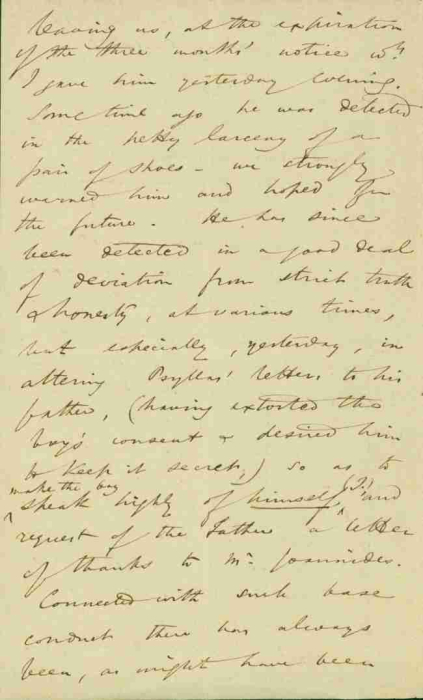 leaving us, at the expiration
of the three months' notice wh.
I gave him yesterday evening.
Some time ago he was detected
in the petty larceny of a
pair of shoes - we strongly
warned him and hoped for
the future. He has since
been detected in a good deal
of deviation from strict truth
& honesty, at various times,
but especially, yesterday, in
altering Psyllas' letters to his
father, (having extorted the
boy's consent & desired him
to keep it secret,) so as to
make the boy
speak highly of himself (J.) and
request of the Father a letter
of thanks to Mr. Joannides.
Connected with such base
conduct there has always
been, as might have been